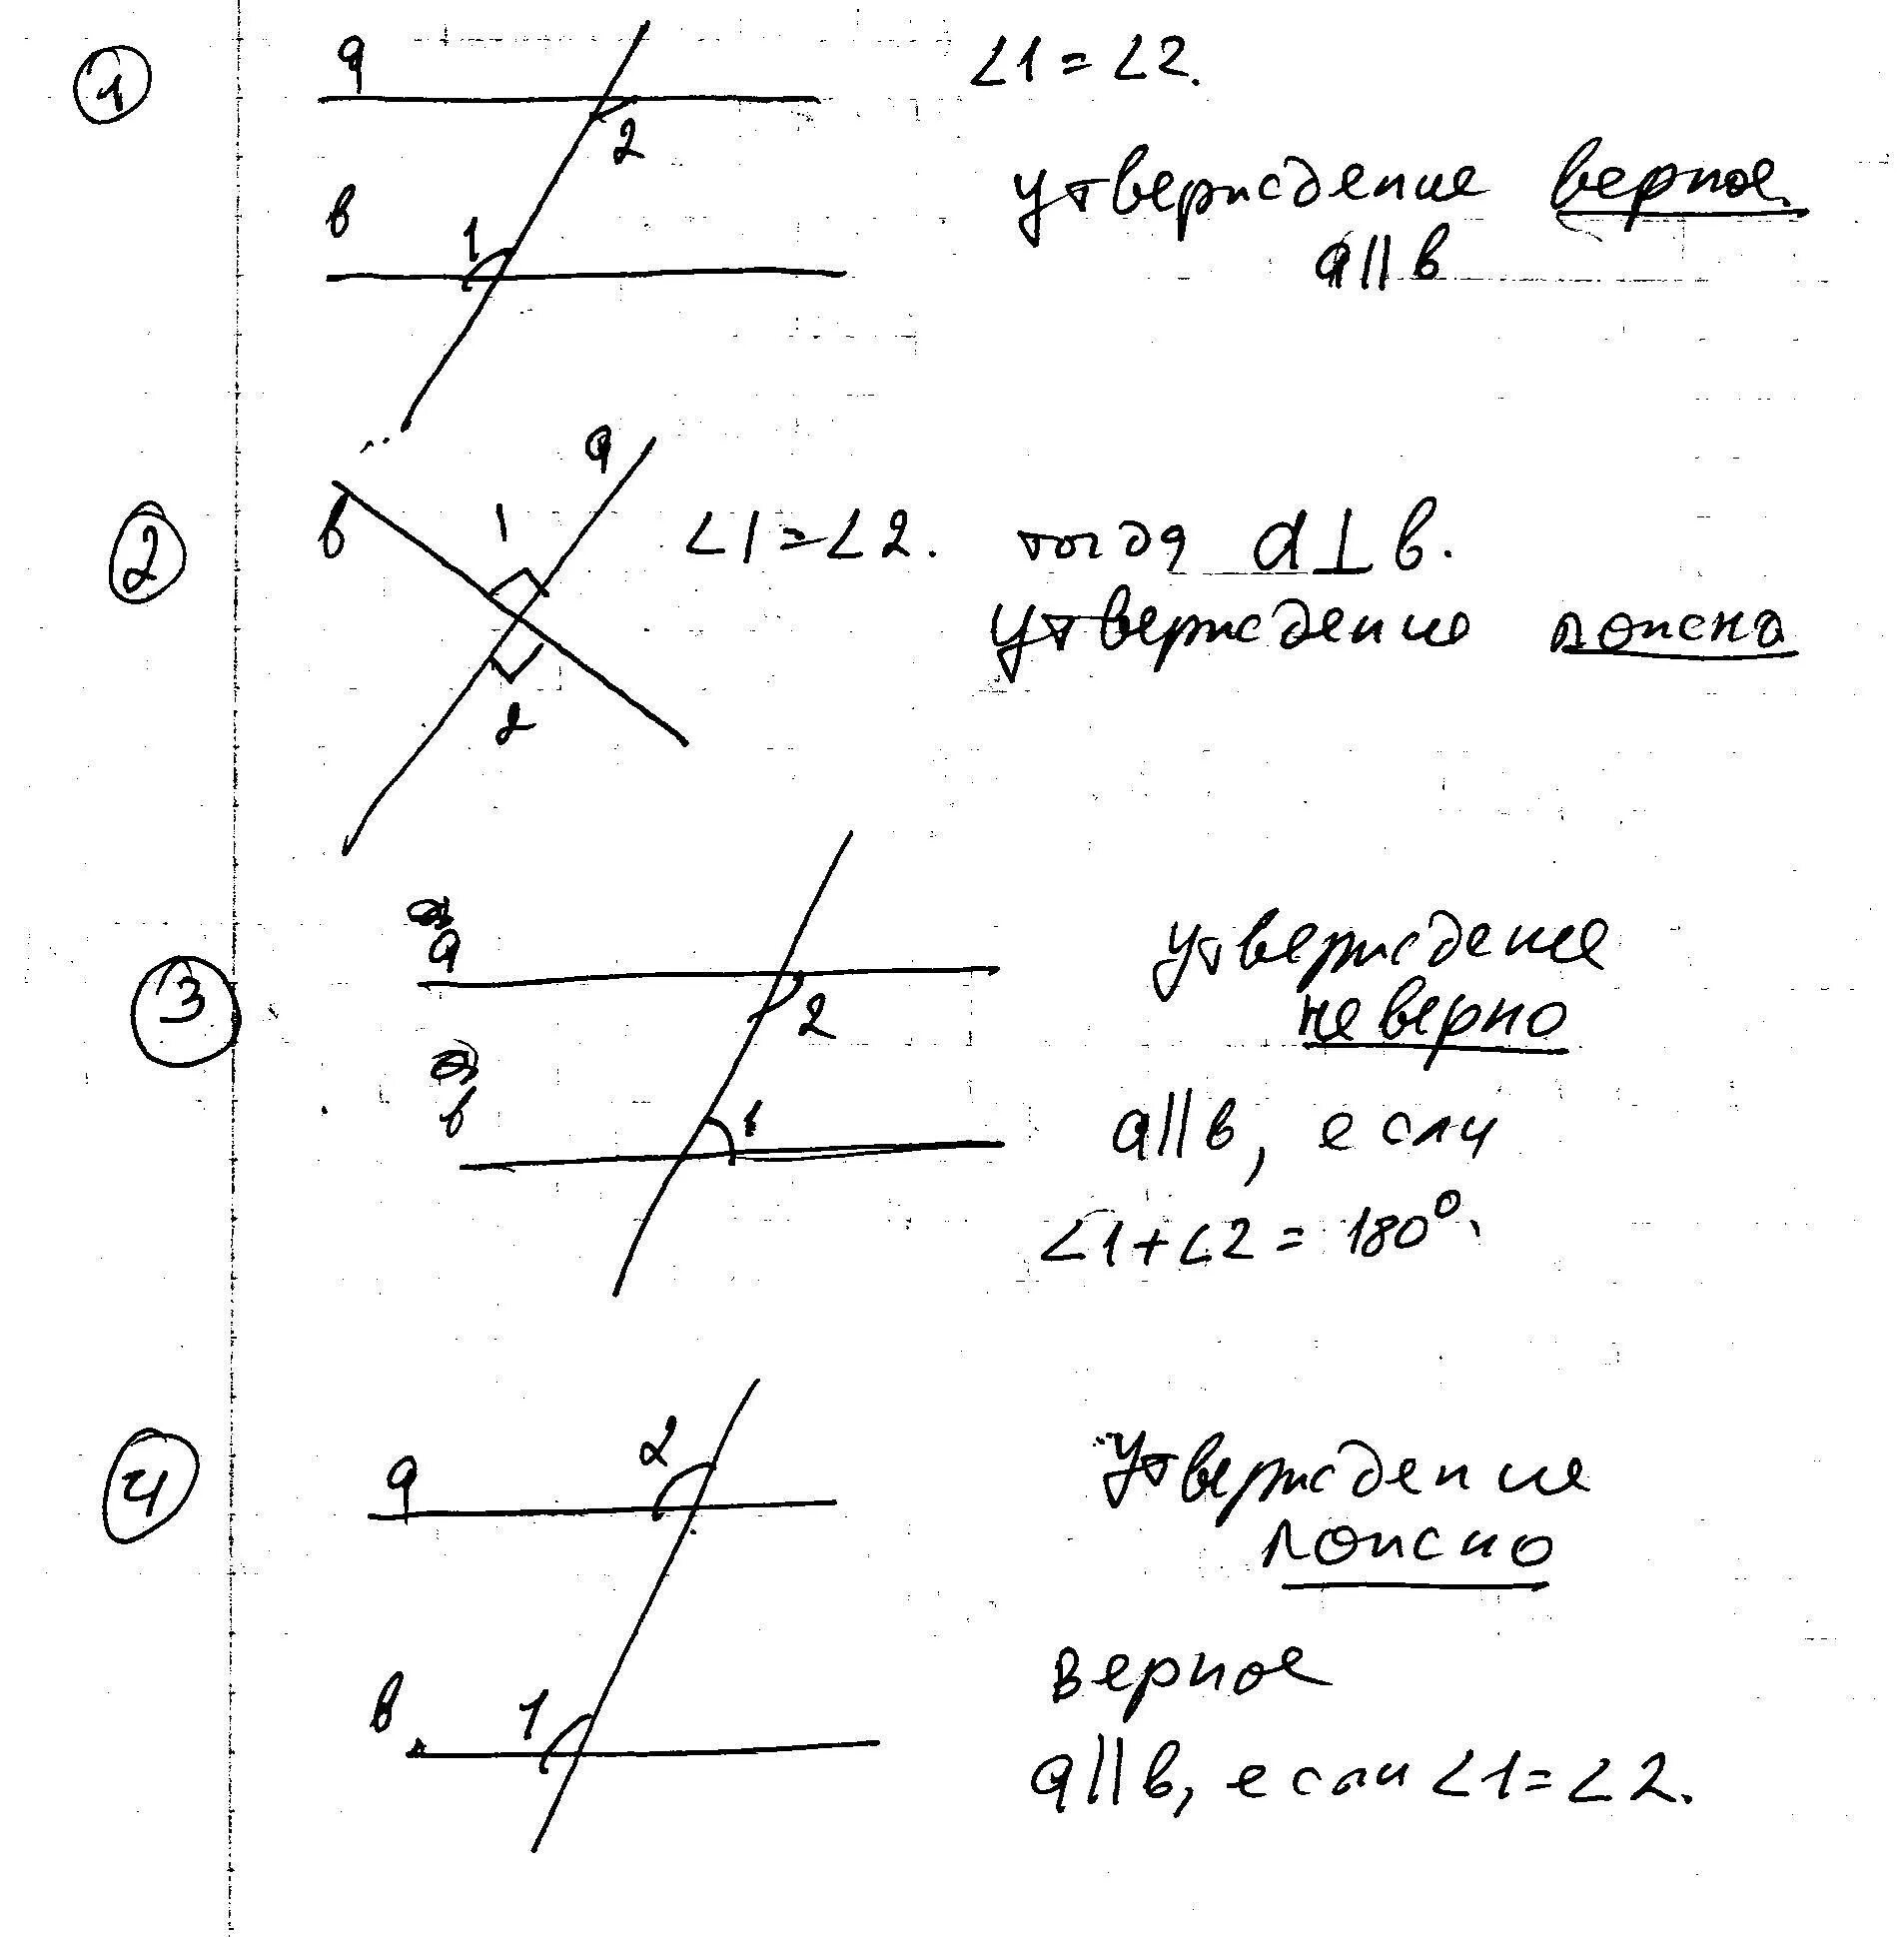 1
a
∠1 = ∠2.
2
утверждение верное.
в
1
a || в
2
a
в
1
∠1 = ∠2. тогда a ⊥ в.
утверждение ложно
2
3
a
утверждение
неверно
2
в
1
a || в, если
∠1 + ∠2 = 180°.
4
a
2
утверждение
ложно
верное
в
1
a || в, если ∠1 = ∠2.